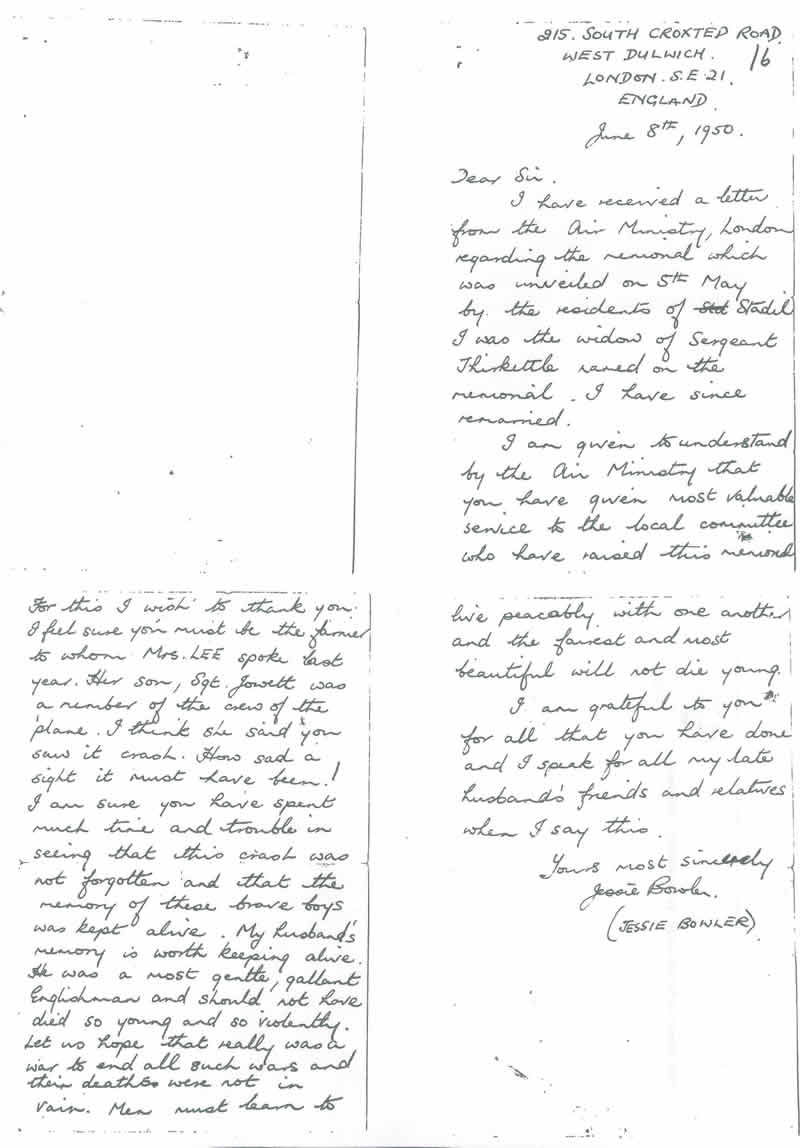 215. SOUTH CROXTED ROAD
WEST DULWICH.
16
LONDON. S.E.21.
ENGLAND.
June 8th, 1950.
Dear Sir.
I have received a letter
from the Air Ministry, London
regarding the memorial which
was unveiled on 5th May
by the residents of Std Stadil
I was the widow of Sergeant
Thirkettle named on the
memorial. I have since
remarried.
I am given to understand
by the Air Ministry that
you have given most valuable
service to the local committee
who have raised this memorial
For this I wish to thank you.
I feel sure you must be the farmer
to whom Mrs. LEE spoke last
year. Her son, Sgt. Jowett was
a member of the crew of the
plane. I think she said you
saw it crash. How sad a
sight it must have been!
I am sure you have spent
much time and trouble in
seeing that this crash was
not forgotten and that the
memory of these brave boys
was kept alive. My husband's
memory is worth keeping alive.
He was a most gentle, gallant
Englishman and should not have
died so young and so violently.
Let us hope that really was a
war to end all such wars and
their deaths were not in
vain. Men must learn to
live peacably with one another
and the fairest and most
beautiful will not die young.
I am grateful to you
for all that you have done
and I speak for all my late
husband's friends and relatives
when I say this.
Yours most sincerely
Jessie Bowler.
(JESSIE BOWLER)